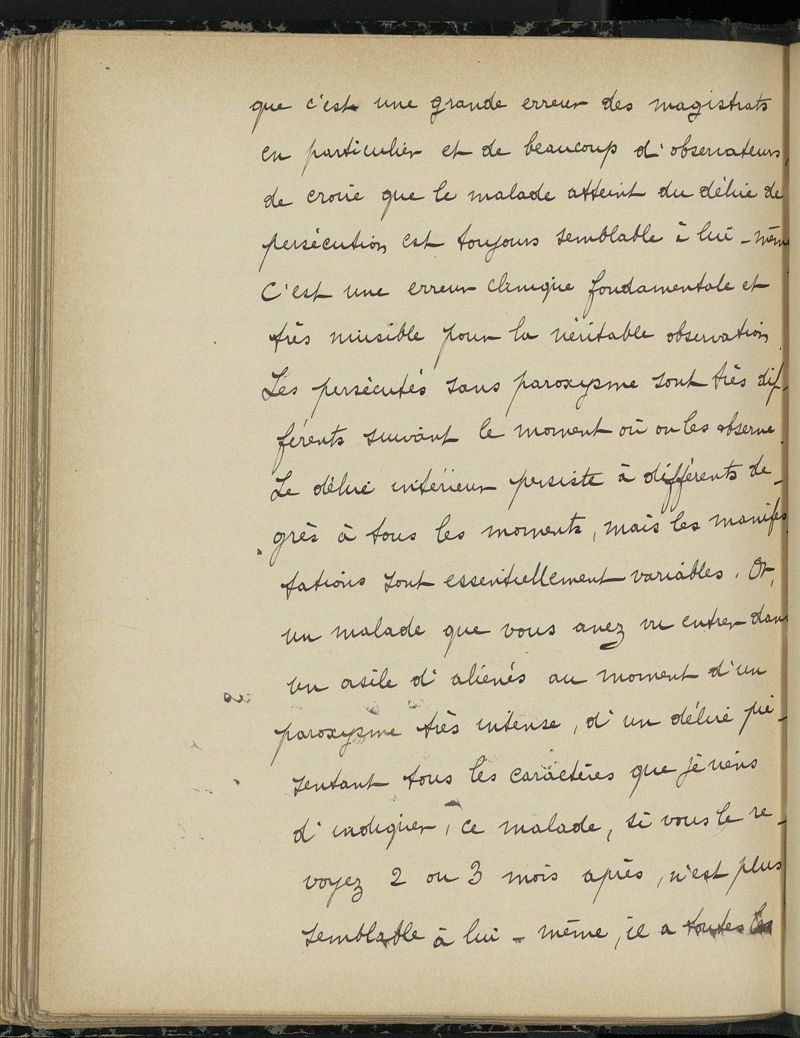 que c'est une grande erreur des magistrats
en particulier et de beaucoup d'observateurs,
de croire que le malade atteint du délire de
persécution est toujours semblable à lui-même
C'est une erreur clinique fondamentale et
très nuisible pour la véritable observation.
Les persécutés sans paroxysme sont très dif-
férents suivant le moment où on les observe.
Le délire intérieur persiste à différents de-
grès à tous les moments, mais les manifes
tations sont essentiellement variables. Or,
un malade que vous avez vu entrer dans
un asile d'aliénés au moment d'un
paroxysme très intense, d'un délire pré-
sentant tous les caractères que je viens
d'indiquer, ce malade, si vous le re-
voyez 2 ou 3 mois après, n'est plus
semblable à lui-même, il a toutes les